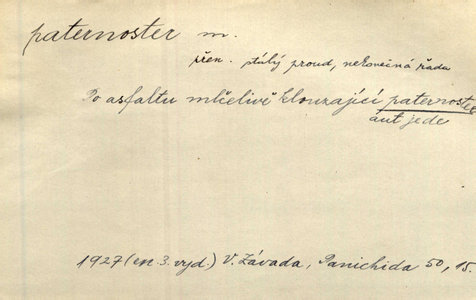 paternoster m.
přen. stálý proud, nekonečná řada
Po asfaltu mlčelivě klouzající paternoster
aut jede
1927 (ex. 3. vyd.) V. Závada, Panichida 50, 15.